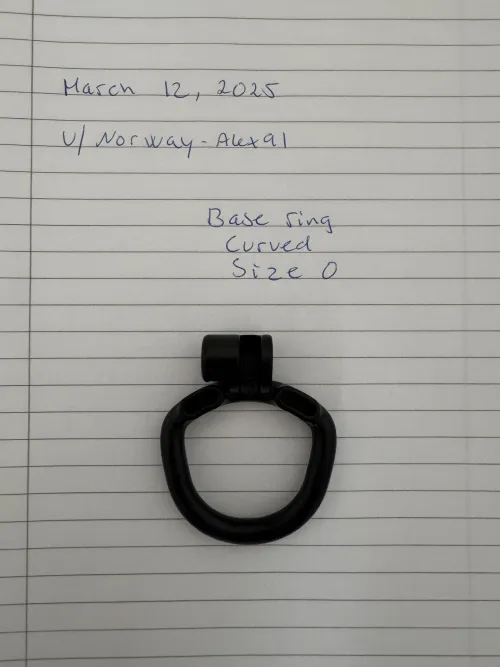 March 12, 2025
U/ Norway-Alex91
Base ring
Curved
Size 0